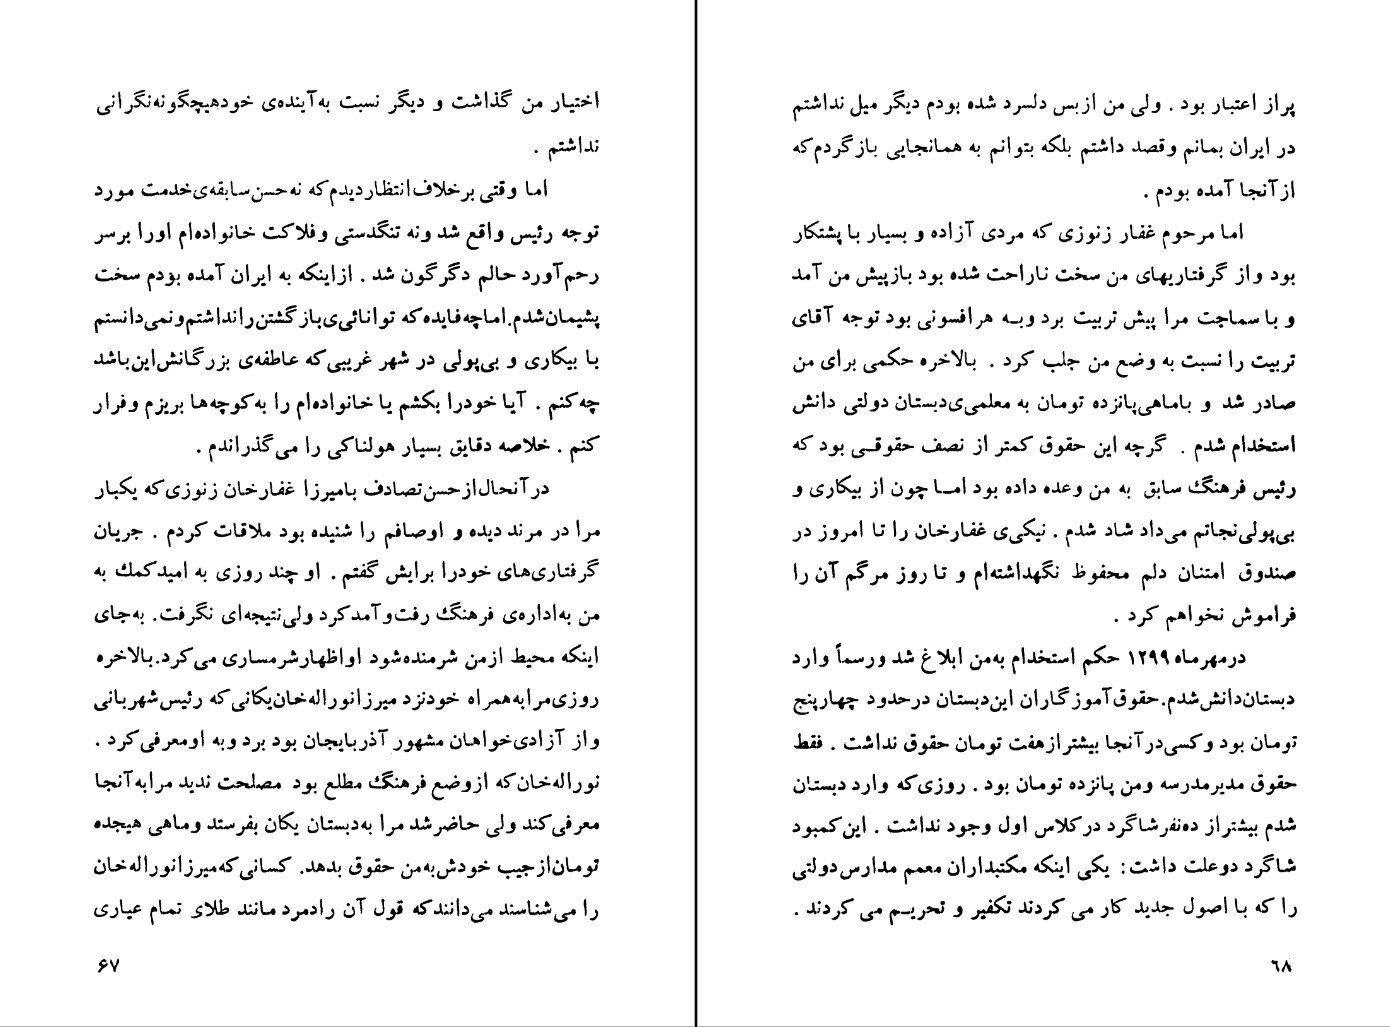 اختیار من گذاشت و دیگر نسبت به‌آینده‌ی خودهیچگونه‌نگرانی
نداشتم .
اما وقتی برخلاف‌انتظاردیدم‌که نه‌حسن‌سابقه‌ی‌خدمت مورد
توجه رئیس واقع شد ونه تنگدستی وفلاکت خانواده‌ام اورا برسر
رحم‌آورد حالم دگرگون شد . ازاینکه به ایران آمده بودم سخت
پشیمان‌شدم.اماچه‌فایده‌که توانائی‌ی‌بازگشتن‌رانداشتم‌ونمی‌دانستم
با بیکاری و بی‌پولی در شهر غریبی‌که عاطفه‌ی بزرگانش‌این‌باشد
چه‌کنم . آیا خودرا بکشم یا خانواده‌ام را به‌کوچه‌ها بریزم وفرار
کنم . خلاصه دقایق بسیار هولناکی را می‌گذراندم .
درآنحال‌ازحسن‌تصادف بامیرزا غفارخان زنوزی‌که یکبار
مرا در مرند دیده و اوصافم را شنیده بود ملاقات کردم . جریان
گرفتاری‌های خودرا برایش گفتم . او چند روزی به امیدکمك به
من به‌اداره‌ی فرهنگ رفت‌وآمدکرد ولی‌نتیجه‌ای نگرفت. به‌جای
اینکه محیط ازمن شرمنده‌شود اواظهارشرمساری می‌کرد.بالاخره
روزی‌مرابه‌همراه خودنزد میرزانوراله‌خان‌یکانی‌که رئیس‌شهربانی
واز آزادی‌خواهان مشهور آذربایجان بود برد وبه اومعرفی‌کرد .
نوراله‌خان‌که ازوضع فرهنگ مطلع بود مصلحت ندید مرابه‌آنجا
معرفی‌کند ولی حاضرشد مرا به‌دبستان یکان بفرستد وماهی هیجده
تومان‌ازجیب خودش‌به‌من حقوق بدهد. کسانی‌که‌میرزانوراله‌خان
را می‌شناسند می‌دانندکه قول آن رادمرد مانند طلای تمام عیاری
۶۷
پراز اعتبار بود . ولی من ازبس دلسرد شده بودم دیگر میل نداشتم
در ایران بمانم وقصد داشتم بلکه بتوانم به همانجایی بازگردم‌که
ازآنجا آمده بودم .
اما مرحوم غفار زنوزی که مردی آزاده و بسیار با پشتکار
بود واز گرفتاریهای من سخت ناراحت شده بود بازپیش من آمد
و باسماجت مرا پیش تربیت برد وبه هرافسونی بود توجه آقای
تربیت را نسبت به وضع من جلب کرد . بالاخره حکمی برای من
صادر شد و باماهی‌پانزده تومان به معلمی‌ی‌دبستان دولتی دانش
استخدام شدم . گرچه این حقوق کمتر از نصف حقوقی بود که
رئیس فرهنگ سابق به من وعده داده بود اما چون از بیکاری و
بی‌پولی‌نجاتم می‌داد شاد شدم . نیکی‌ی غفارخان را تا امروز در
صندوق امتنان دلم محفوظ نگهداشته‌ام و تا روز مرگم آن را
فراموش نخواهم کرد .
درمهرماه ۱۲۹۹ حکم استخدام به‌من ابلاغ شد ورسماً وارد
دبستان‌دانش‌شدم.حقوق‌آموزگاران این‌دبستان درحدود چهارپنج
تومان بود وکسی‌درآنجا بیشترازهفت تومان حقوق نداشت . فقط
حقوق مدیرمدرسه ومن پانزده تومان بود . روزی‌که وارد دبستان
شدم بیشتراز ده‌نفرشاگرد درکلاس اول وجود نداشت . این‌کمبود
شاگرد دوعلت داشت: یکی اینکه مکتبداران معمم مدارس‌دولتی
را که با اصول جدید کار می کردند تکفیر و تحریم می کردند .
۶۸